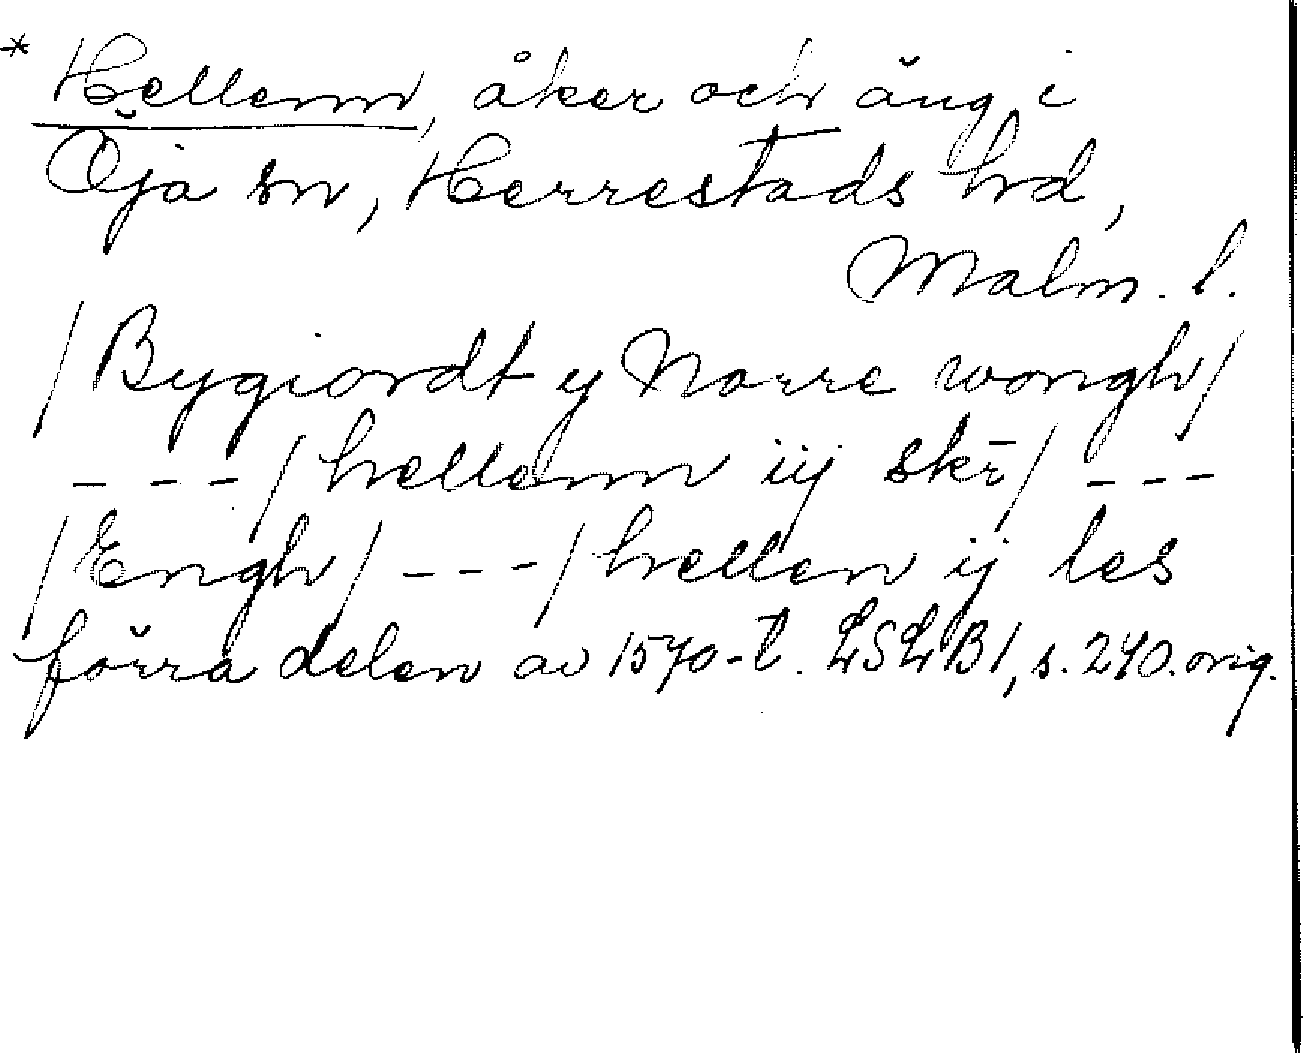 * Hellenn, åker och äng i
Öja sn, Herrestads hd,
Malm. l.
/Bygiordt y Norre wongh/
---/hellenn iij skr̄/ ---
/Engh/ ---/hellen ij les
förra delen av 1570-t. LSLB1, s. 240. orig.